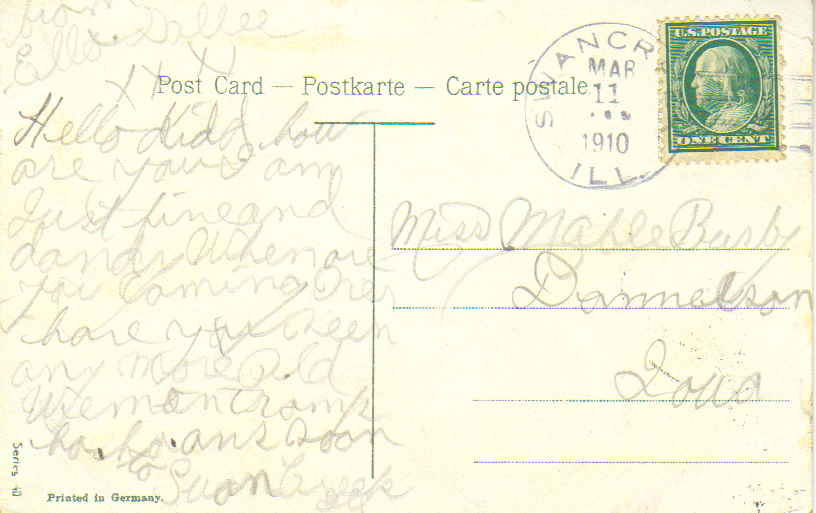 from
Ella
X X X
Post Card — Postkarte — Carte postale
SWANCR
MAR
11
1910
ILL.
U.S. POSTAGE
ONE CENT
Hello Kidd how
are you I am
Just fine and
dandy When are
you Coming Over
have you seen
any more old
tramps
ho. ho. ans soon
to Swan Creek
Ill
Miss Mable Busby
Donnelson
Iowa
Series
Printed in Germany.